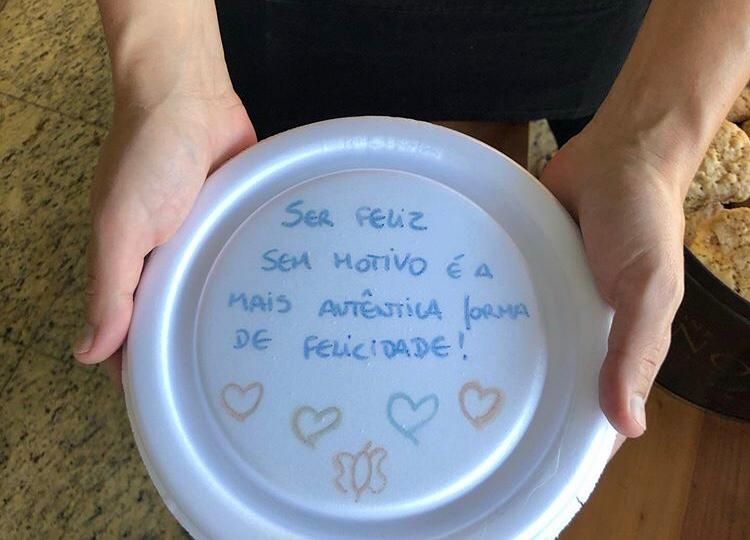 SER FELIZ
SEM MOTIVO É A
MAIS AUTÊNTICA FORMA
DE FELICIDADE!